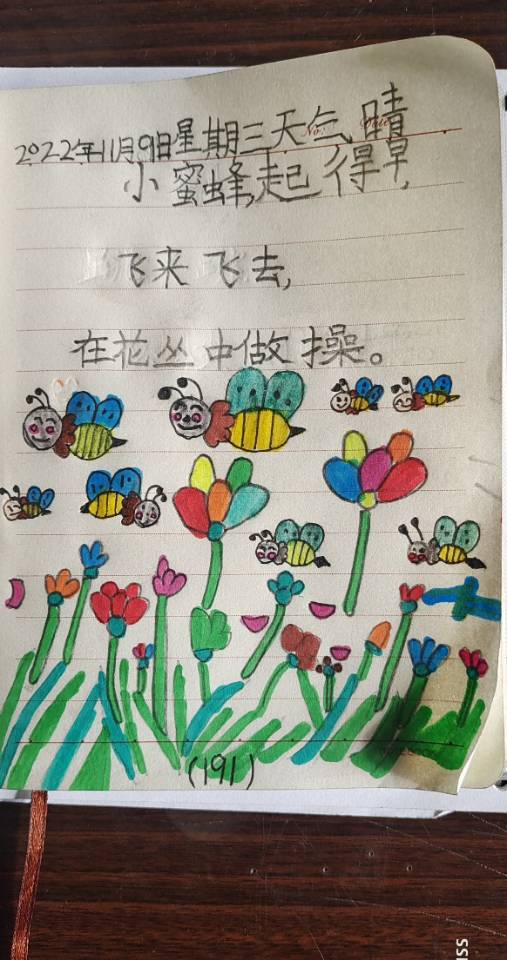 2022年11月9日星期三天气晴
小蜜蜂,起得早,
飞来飞去,
在花丛中做操。
(191)